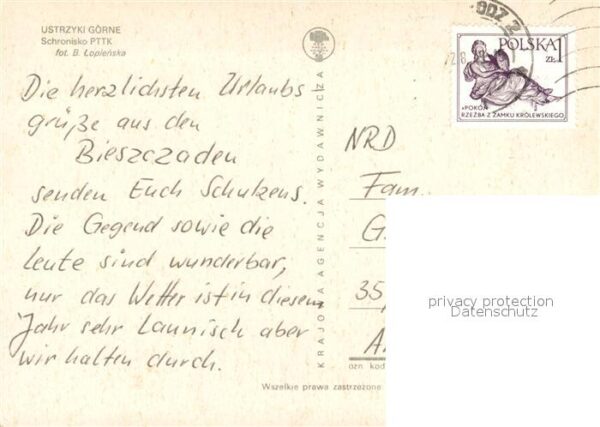 USTRZYKI GÓRNE
Schronisko PTTK
fot. B. Łopieńska
Die herzlichsten Urlaubs
grüße aus den
Bieszczaden
senden Euch Schulzens.
Die Gegend sowie die
Leute sind wunderbar,
nur das Wetter ist in diesem
Jahr sehr Launisch aber
wir halten durch.
KRAJOWA AGENCJA WYDAWNICZA
POLSKA 1
ZŁ
»POKÓJ«
RZEŹBA Z ZAMKU KRÓLEWSKIEGO
NRD
Fam.
G
35
A
ozn kod
Wszelkie prawa zastrzeżone
privacy protection
Datenschutz